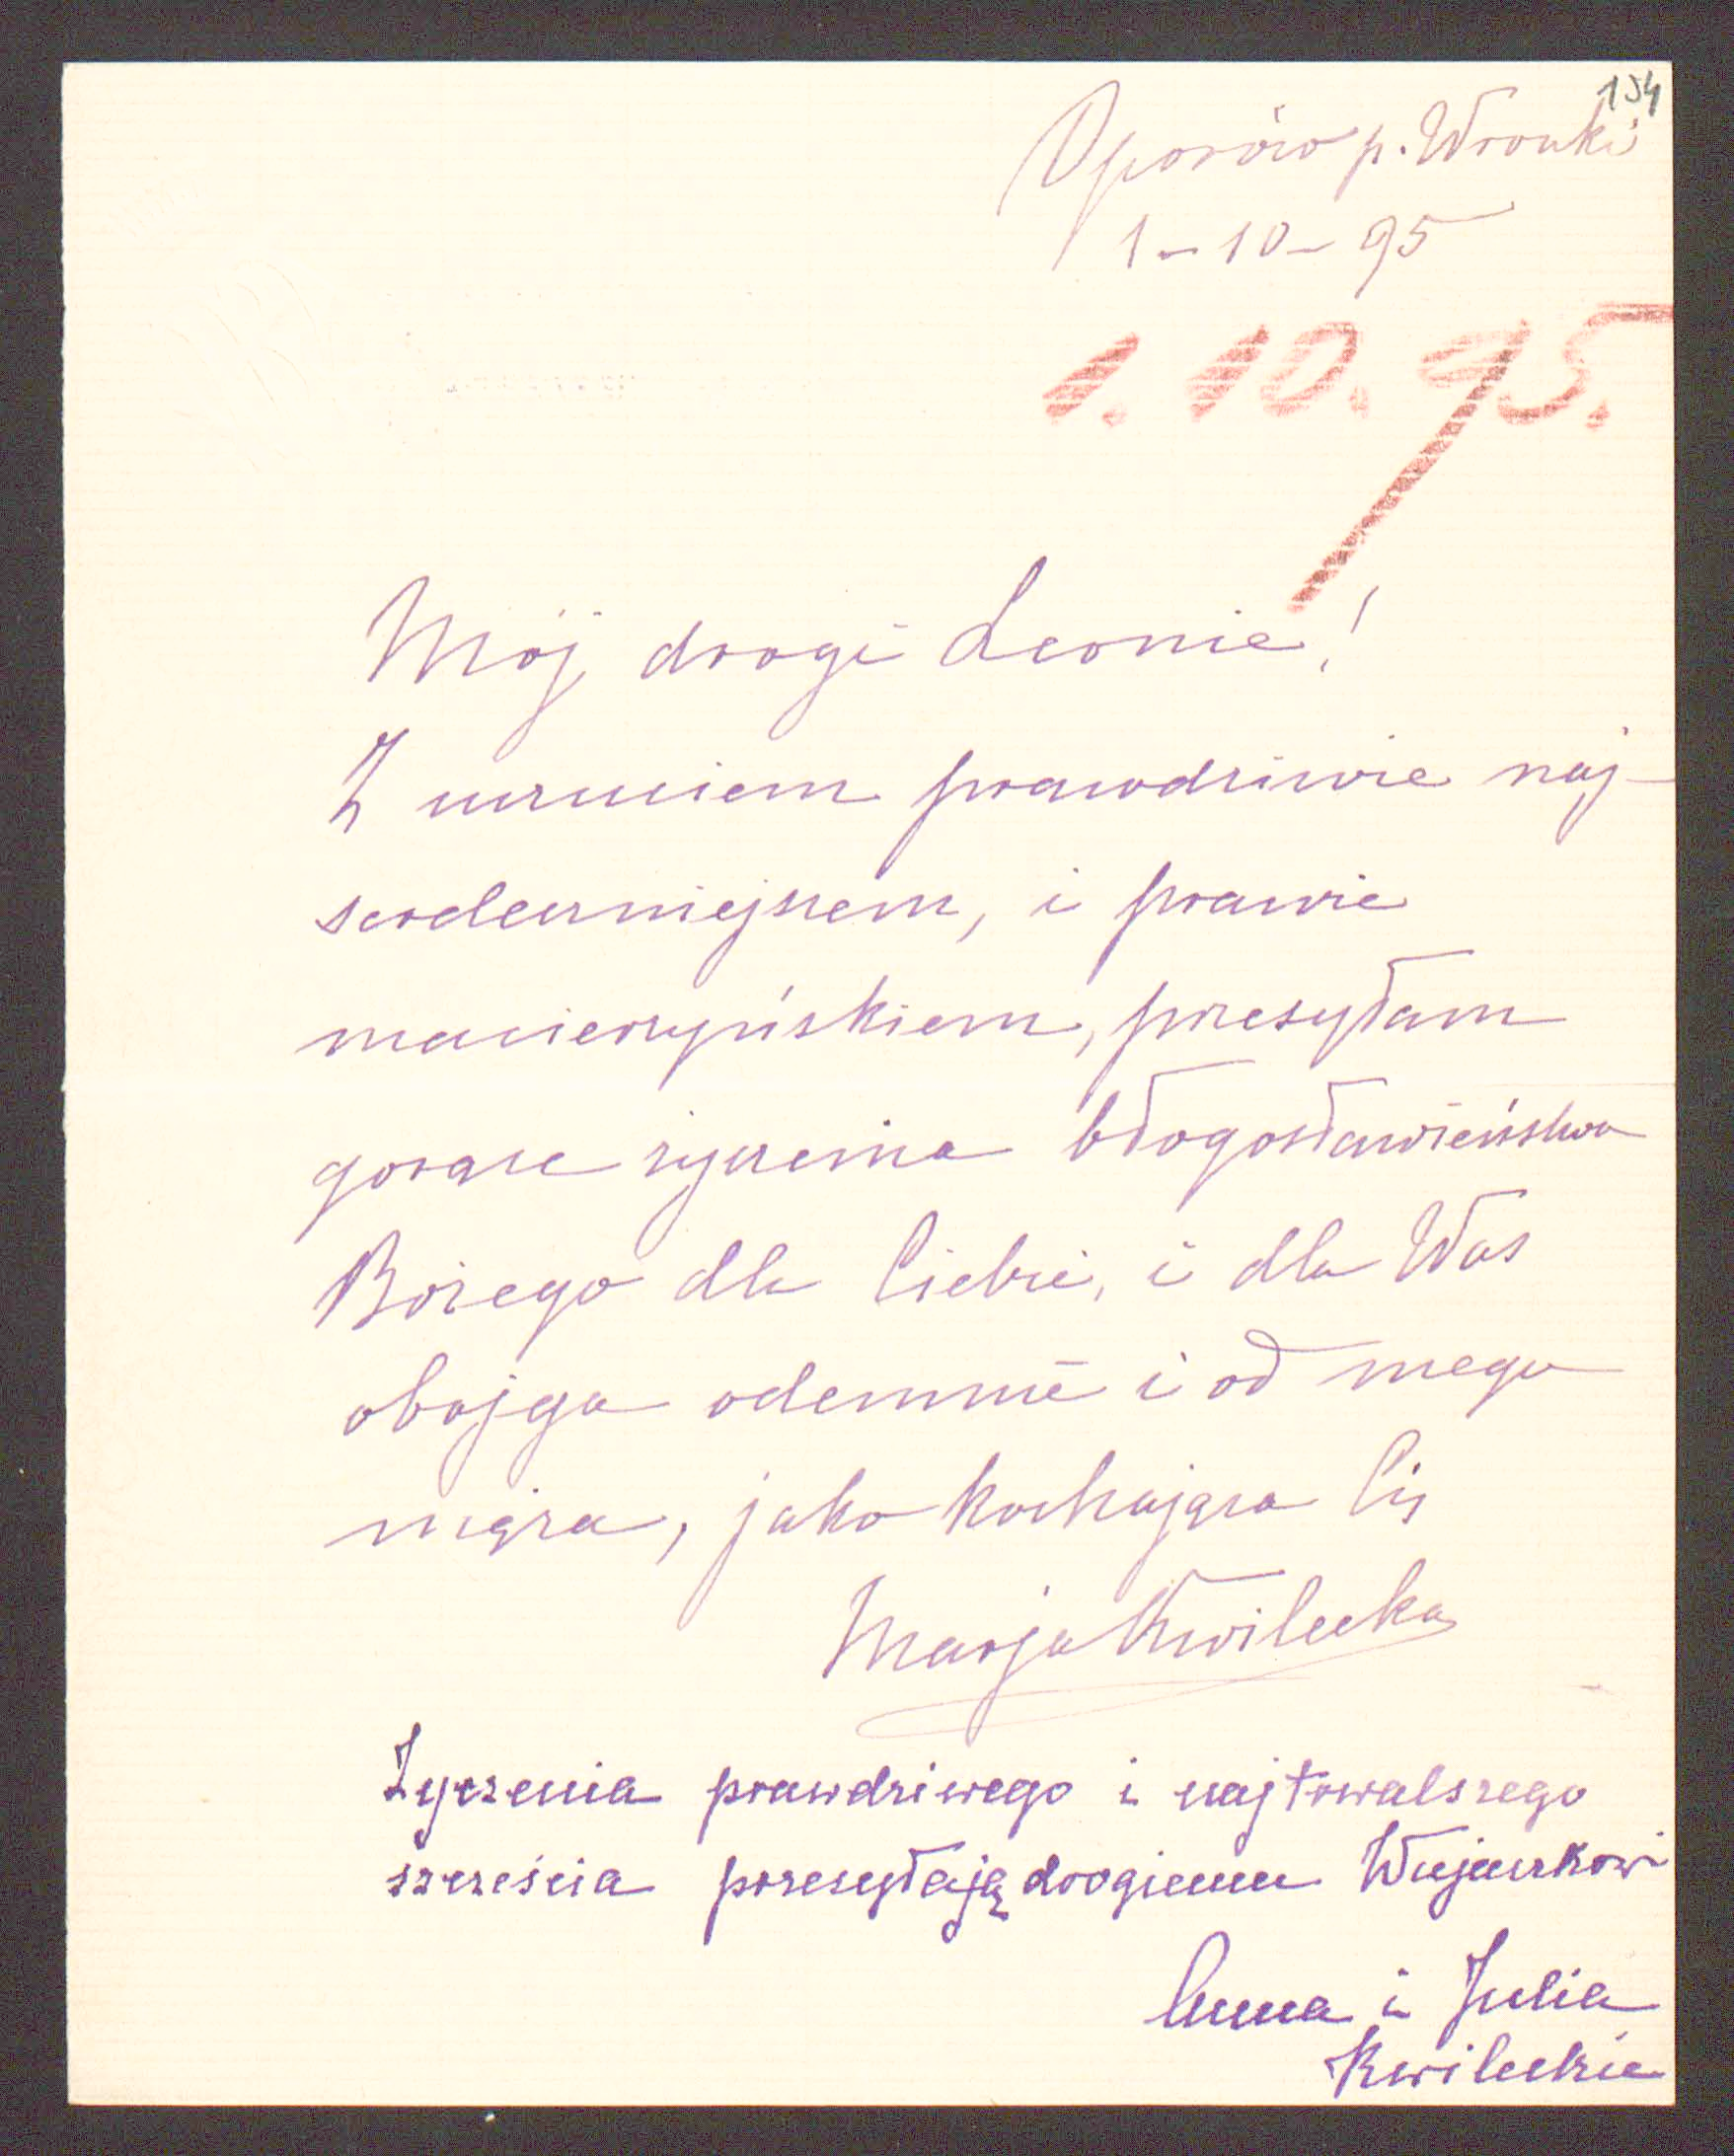 154
Oporów p. Wronki
1-10-95
1. 10. 95.
Mój drogi Leonie!
Z uczuciem prawdziwie naj-
serdeczniejszem, i prawie
macierzyńskiem, przesyłam
gorące życzenia błogosławieństwa
Bożego dla Ciebie, i dla Was
obojga odemnie i od mego
męża, jako kochająca Cię
Marja Kwilecka
Życzenia prawdziwego i najtrwalszego
szczęścia przesyłają drogiemu Wujaszkowi
Anna i Julia
Kwileckie